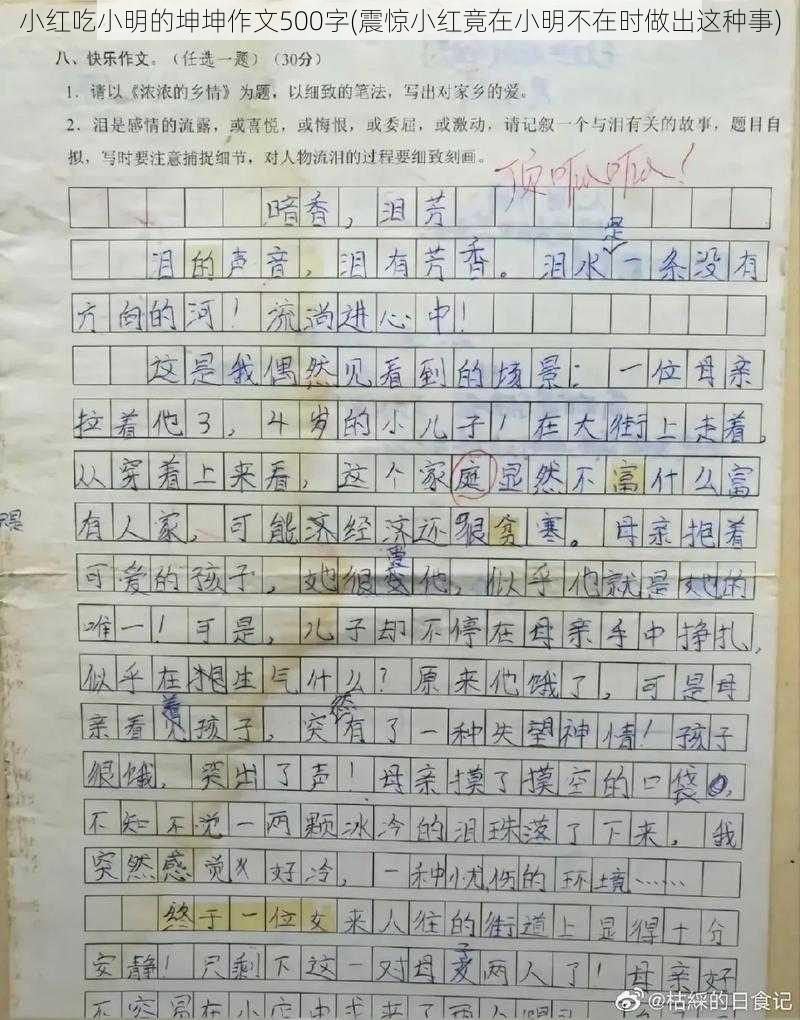 小红吃小明的坤坤作文500字(震惊小红竟在小明不在时做出这种事)
八、快乐作文。（任选一题）（30分）
1．请以《浓浓的乡情》为题，以细致的笔法，写出对家乡的爱。
2．泪是感情的流露，或喜悦，或悔恨，或委屈，或激动，请记叙一个与泪有关的故事，题目自
拟，写时要注意捕捉细节，对人物流泪的过程要细致刻画。
顶呱呱！
暗香，泪芳
泪的声音，泪有芳香。泪水是一条没有
方向的河！流淌进心中！
这是我偶然见看到的场景：一位母亲
拉着他3，4岁的小儿子！在大街上走着，
从穿着上来看，这个家庭显然不富什么富
有人家，可能济经济还很贫寒。母亲抱着
可爱的孩子，她很爱他，似乎他就是她的
唯一！可是，儿子却不停在母亲手中挣扎，
似乎在相生气什么？原来他饿了，可是母
亲看着孩子，突然有了一种失望神情！孩子
很饿，哭出了声！母亲摸了摸空的口袋，
不知不觉一两颗冰冷的泪珠落了下来，我
突然感觉好冷，一种忧伤的环境……
终于一位女来人往的街道上显得十分
安静！只剩下这一对母子两人了！母亲好
不容易在小店中求来了两人
@枯綵的日食记